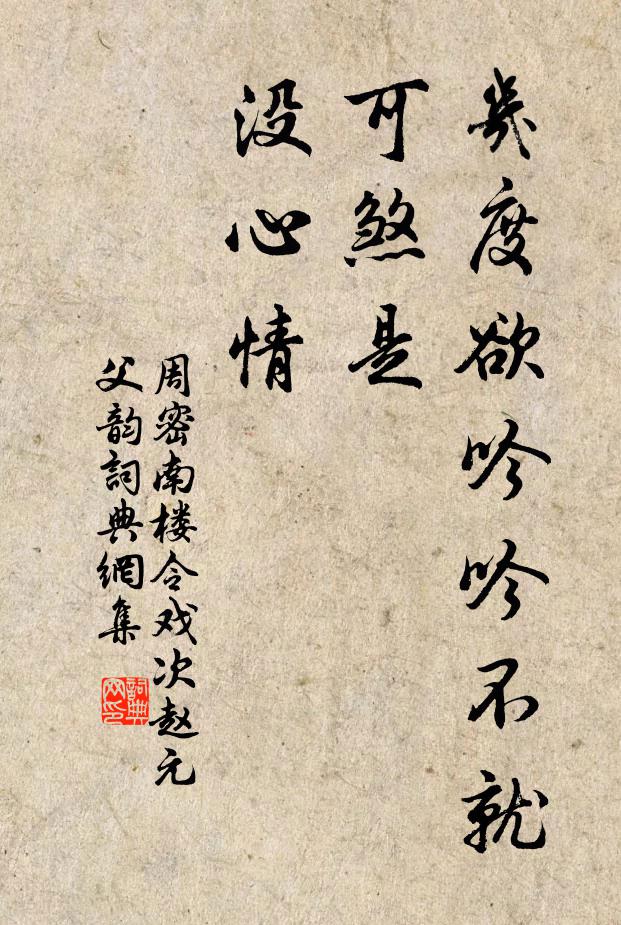 幾度欲吟吟不就
可煞是
没心情
周密南楼令戏次赵元
父韵詞典網集
詞典
网印